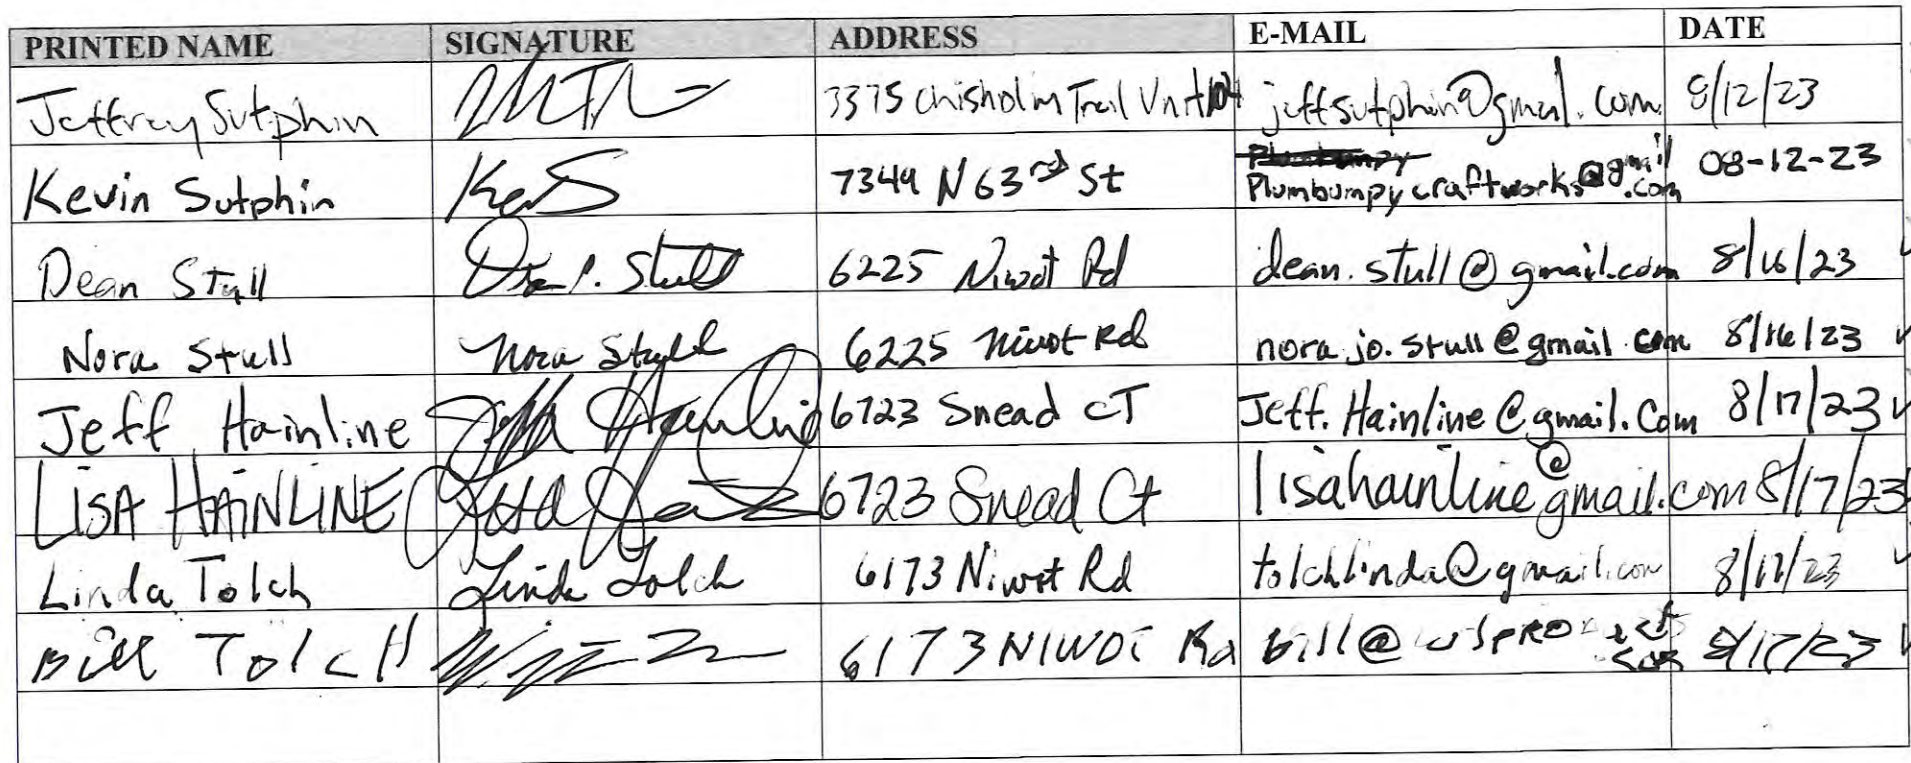 PRINTED NAME SIGNATURE ADDRESS E-MAIL DATE
Jeffrey Sutphin 3375 Chisholm Trail Unit 104 jeffsutphin@gmail.com 8/12/23
Kevin Sutphin KeS 7349 N 63rd St Plumbumpycraftworks@gmail.com 08-12-23
Dean Stull Dean P. Stull 6225 Niwot Rd dean.stull@gmail.com 8/16/23
Nora Stull Nora Stull 6225 Niwot Rd norajo.stull@gmail.com 8/16/23
Jeff Hainline Jeff Hainline 6723 Snead CT Jeff.Hainline@gmail.Com 8/17/23
LiSA HAiNLINE Lisa 6723 Snead Ct lisahainline@gmail.com 8/17/23
Linda Tolch Linda Tolch 6173 Niwot Rd tolchlinda@gmail.com 8/17/23
Bill TolcH 6173 NIWOT Rd bill@ 8/17/23